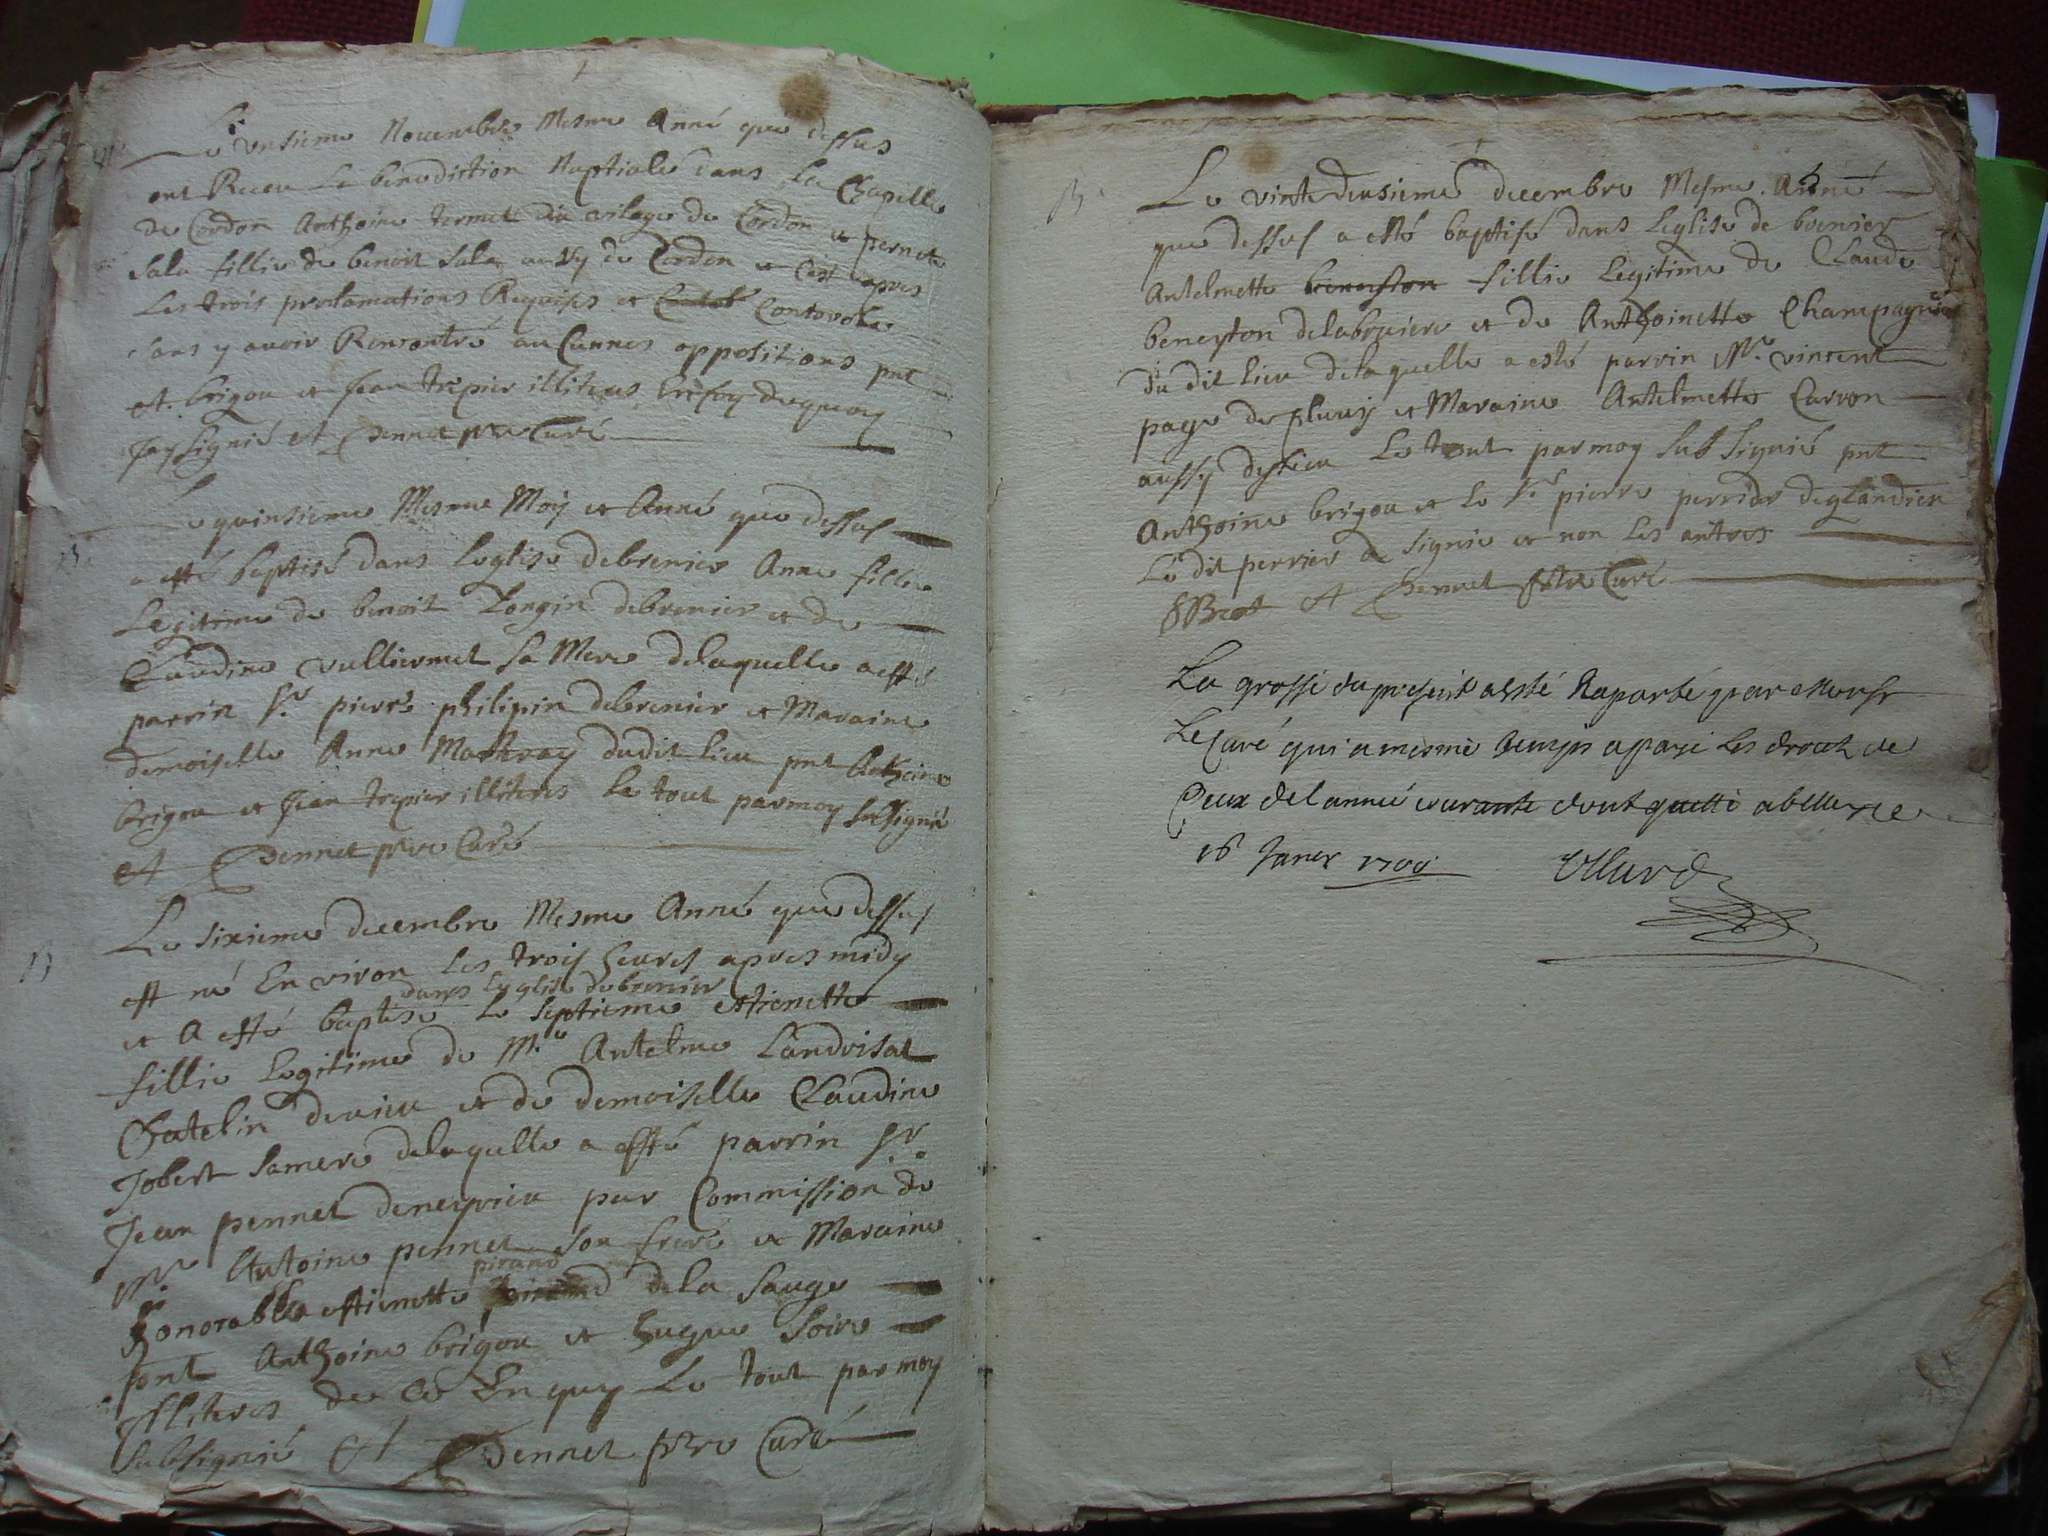 Le unsieme Novembre Mesme Anné que dessus
ont Receu La benediction Nuptiale dans La Chapelle
de Cordon Anthoine termet du vilage de Cordon et pernete
Sala fillie de benoit Sala aussy de Cordon et C'est apres
Les trois proclamations Requises et Controle
sans y avoir Rencontré auCunnes oppositions pnt
A. brigou et Jean trepier illiteres En foy dequoy
Jay Signié et A Pennet ptre Curé
Le quinsieme Mesme Moy et Anné que dessus
a esté baptisé dans leglise debrenier Anne fillie
Legitime de benoit Longin debrenier et de
Claudine vulliermet Sa Mere delaquelle a esté
parrin Sr. pierre philipin debrenier et Maraine
demoiselle Anne dudit lieu pnt Anthoine
brigou et Jean trepier illiteres Le tout parmoy Susigné
et A Pennet ptre Curé
Le sixieme decembre Mesme Anné que dessus
est né Environ Les trois heures apres midy
dans Leglise de brenier
et A esté baptisé Le Septieme estienette
fillie Legitime de Mre Antelme Landoisat
Chatelin devieu et de demoiselle Claudine
Jobert Samere delaquelle a esté parrin Sr.
Jean pennet deneyrieu par Commission de
Mre. Antoine pennet Son frere et Maraine
pirand
honorable estienette de la Sauge
pnt Anthoine brigou et hugue Soire
Illiteres de Ce Enquy Le tout parmoy
Subsignié et A Pennet ptre Curé
Le vinte deusieme decembre Mesme Anné
que dessus a esté baptisé dans Leglise de brenier
Antelmette beneyton fillie Legitime de Claude
beneyton delabruiere et de Anthoinette Champagne
du dit lieu delaquelle a esté parrin Mre. vincent
page de fluvij et Maraine Antelmette Carron
aussy desLieu Le tout parmoy Sub Signié pnt
Anthoine brigou et le Sr pierre perrier deglandieu
Le dit perrier a signie et non les autres
A Pennet ptre Curé
La grosse du present aesté Raporté par Monsr
Le Curé qui a mesme temps apayé les droict de
Ceux del année courante dont quitte abellay ce
16 Janer 1700